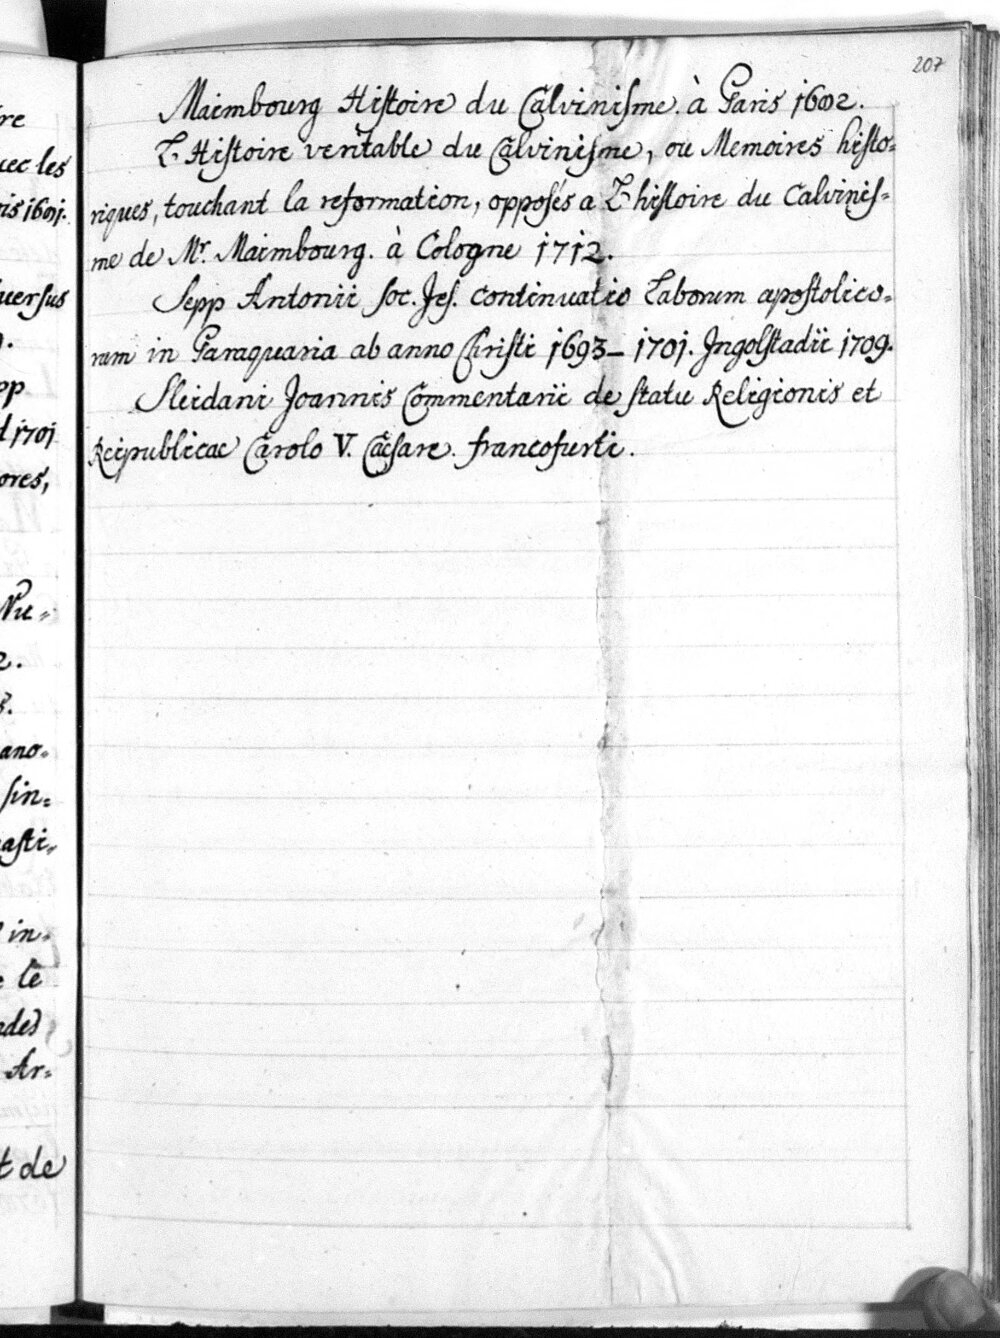 re
uec les
is 1681.
uersus
pp
d 1701
ores,
Nu=
2.
s.
ano=
sin=
asti=
in=
le
ades
Ar=
t de
207
Maimbourg Histoire du Calvinisme. à Paris 1682.
L'Histoire veritable du Calvinisme, ou Memoires histo=
riques, touchant la reformation, opposés a L'histoire du Calvinis=
me de Mr. Maimbourg. à Cologne 1712.
Sepp Antonii Soc. Jes. Continuatio Laborum apostolico=
rum in Paraquaria ab anno Christi 1693 – 1701. Ingolstadii 1709.
Sleidani Joannis Commentarii de statu Religionis et
Reipublicae Carolo V. Caesare. francofurti.